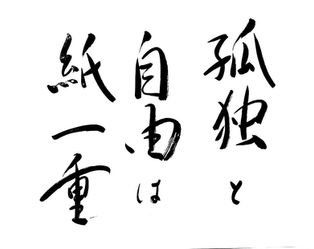 孤独と
自由は
紙一重